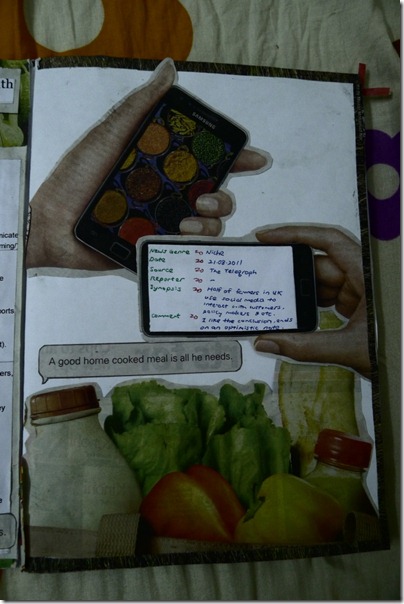 SAMSUNG
News Genre Niche
Date 21-08-2011
Source The Telegraph
Reporter -
Synopsis Half of farmers in UK
use social media to
interact with customers,
policy makers & etc.
Comment I like the conclusion, ends
on an optimistic note.
A good home cooked meal is all he needs.